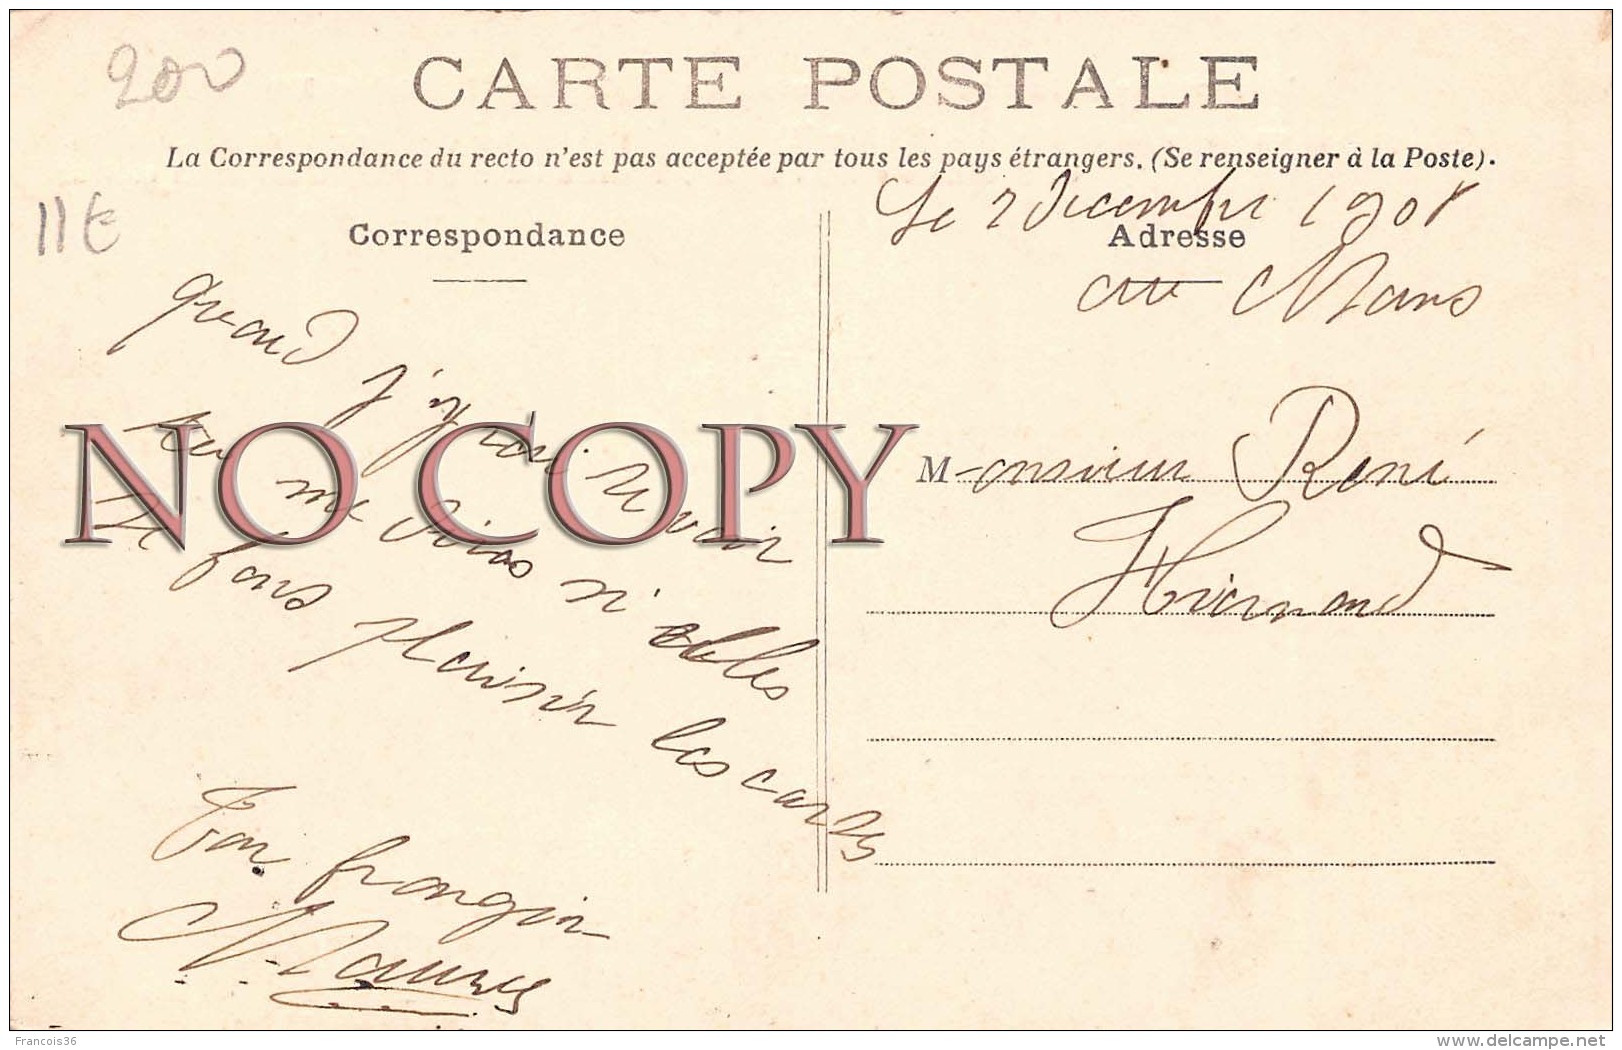 200
CARTE POSTALE
La Correspondance du recto n'est pas acceptée par tous les pays étrangers. (Se renseigner à la Poste).
11€
Correspondance
quand j'y vais te voir
tu me diras si elles
te fons plaisir les cartes
Ton frangin
Maurice
Le 2 Décembre 1908
Adresse
au Mans
Monsieur René
NO COPY
Francois36
delcampe.net